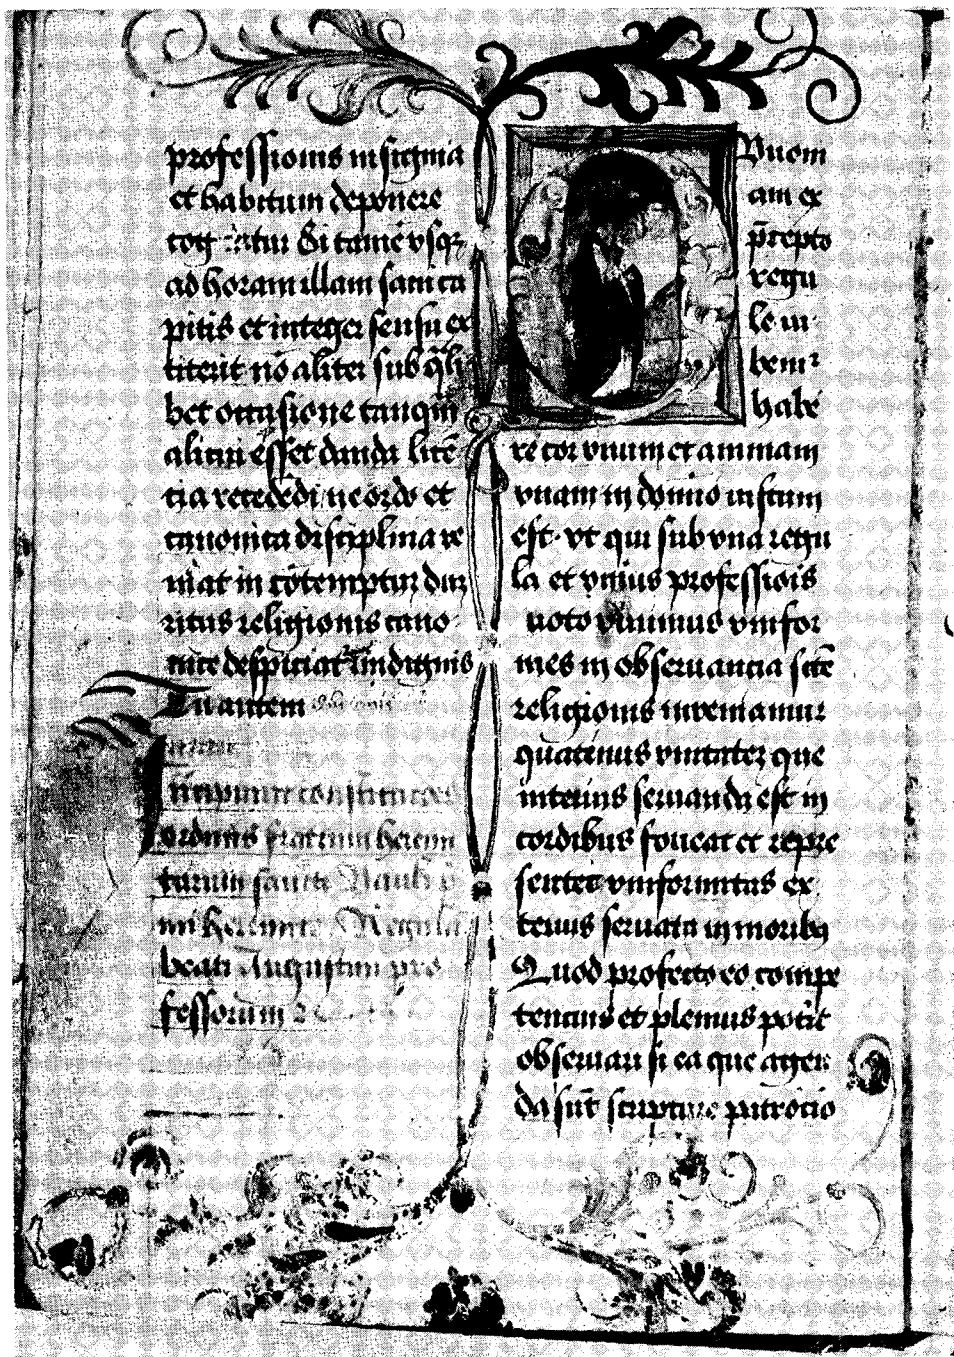 professionis insignia
et habitum deponere
cog atur Si tamē vsqꝫ
ad horam illam sani ca
pitis et integer sensu ex
titerit nō aliter sub qͣli
bet occasione tanqͣm
alicui esset danda licē
tia recededi ne ordo et
canonica disciplina ve
niat in cōtemptuꝫ duꝫ
ritus religionis cano
nice despiciat indignis
Tu autem
constitutiones
ordinis fratrum herem
itarum sancti Pauli
mi heremite Regulā
beati Augustini pro
fessorum
Quoni
am ex
p̄cepto
regu
le iu
bemꝛ
habe
re cor vnum et animam
vnam in domino iustum
est. vt qui sub vna regu
la et vnius professiōis
uoto viuimus vnifor
mes in obseruancia scē
religionis inveniamur
quatenus vnitateꝫ que
interius seruanda est in
cordibus foueat et repre
sentet vniformitas ex
terius seruata in moribꝰ
Quod profecto eo compe
tencius et plenius poterit
obseruari si ea que agen
da sūt scripture patrocinio